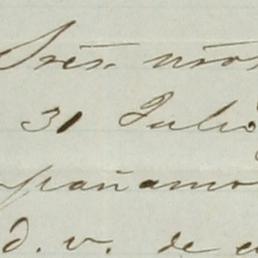 Sres. nros
31 Julio
pañamo
d. v. de